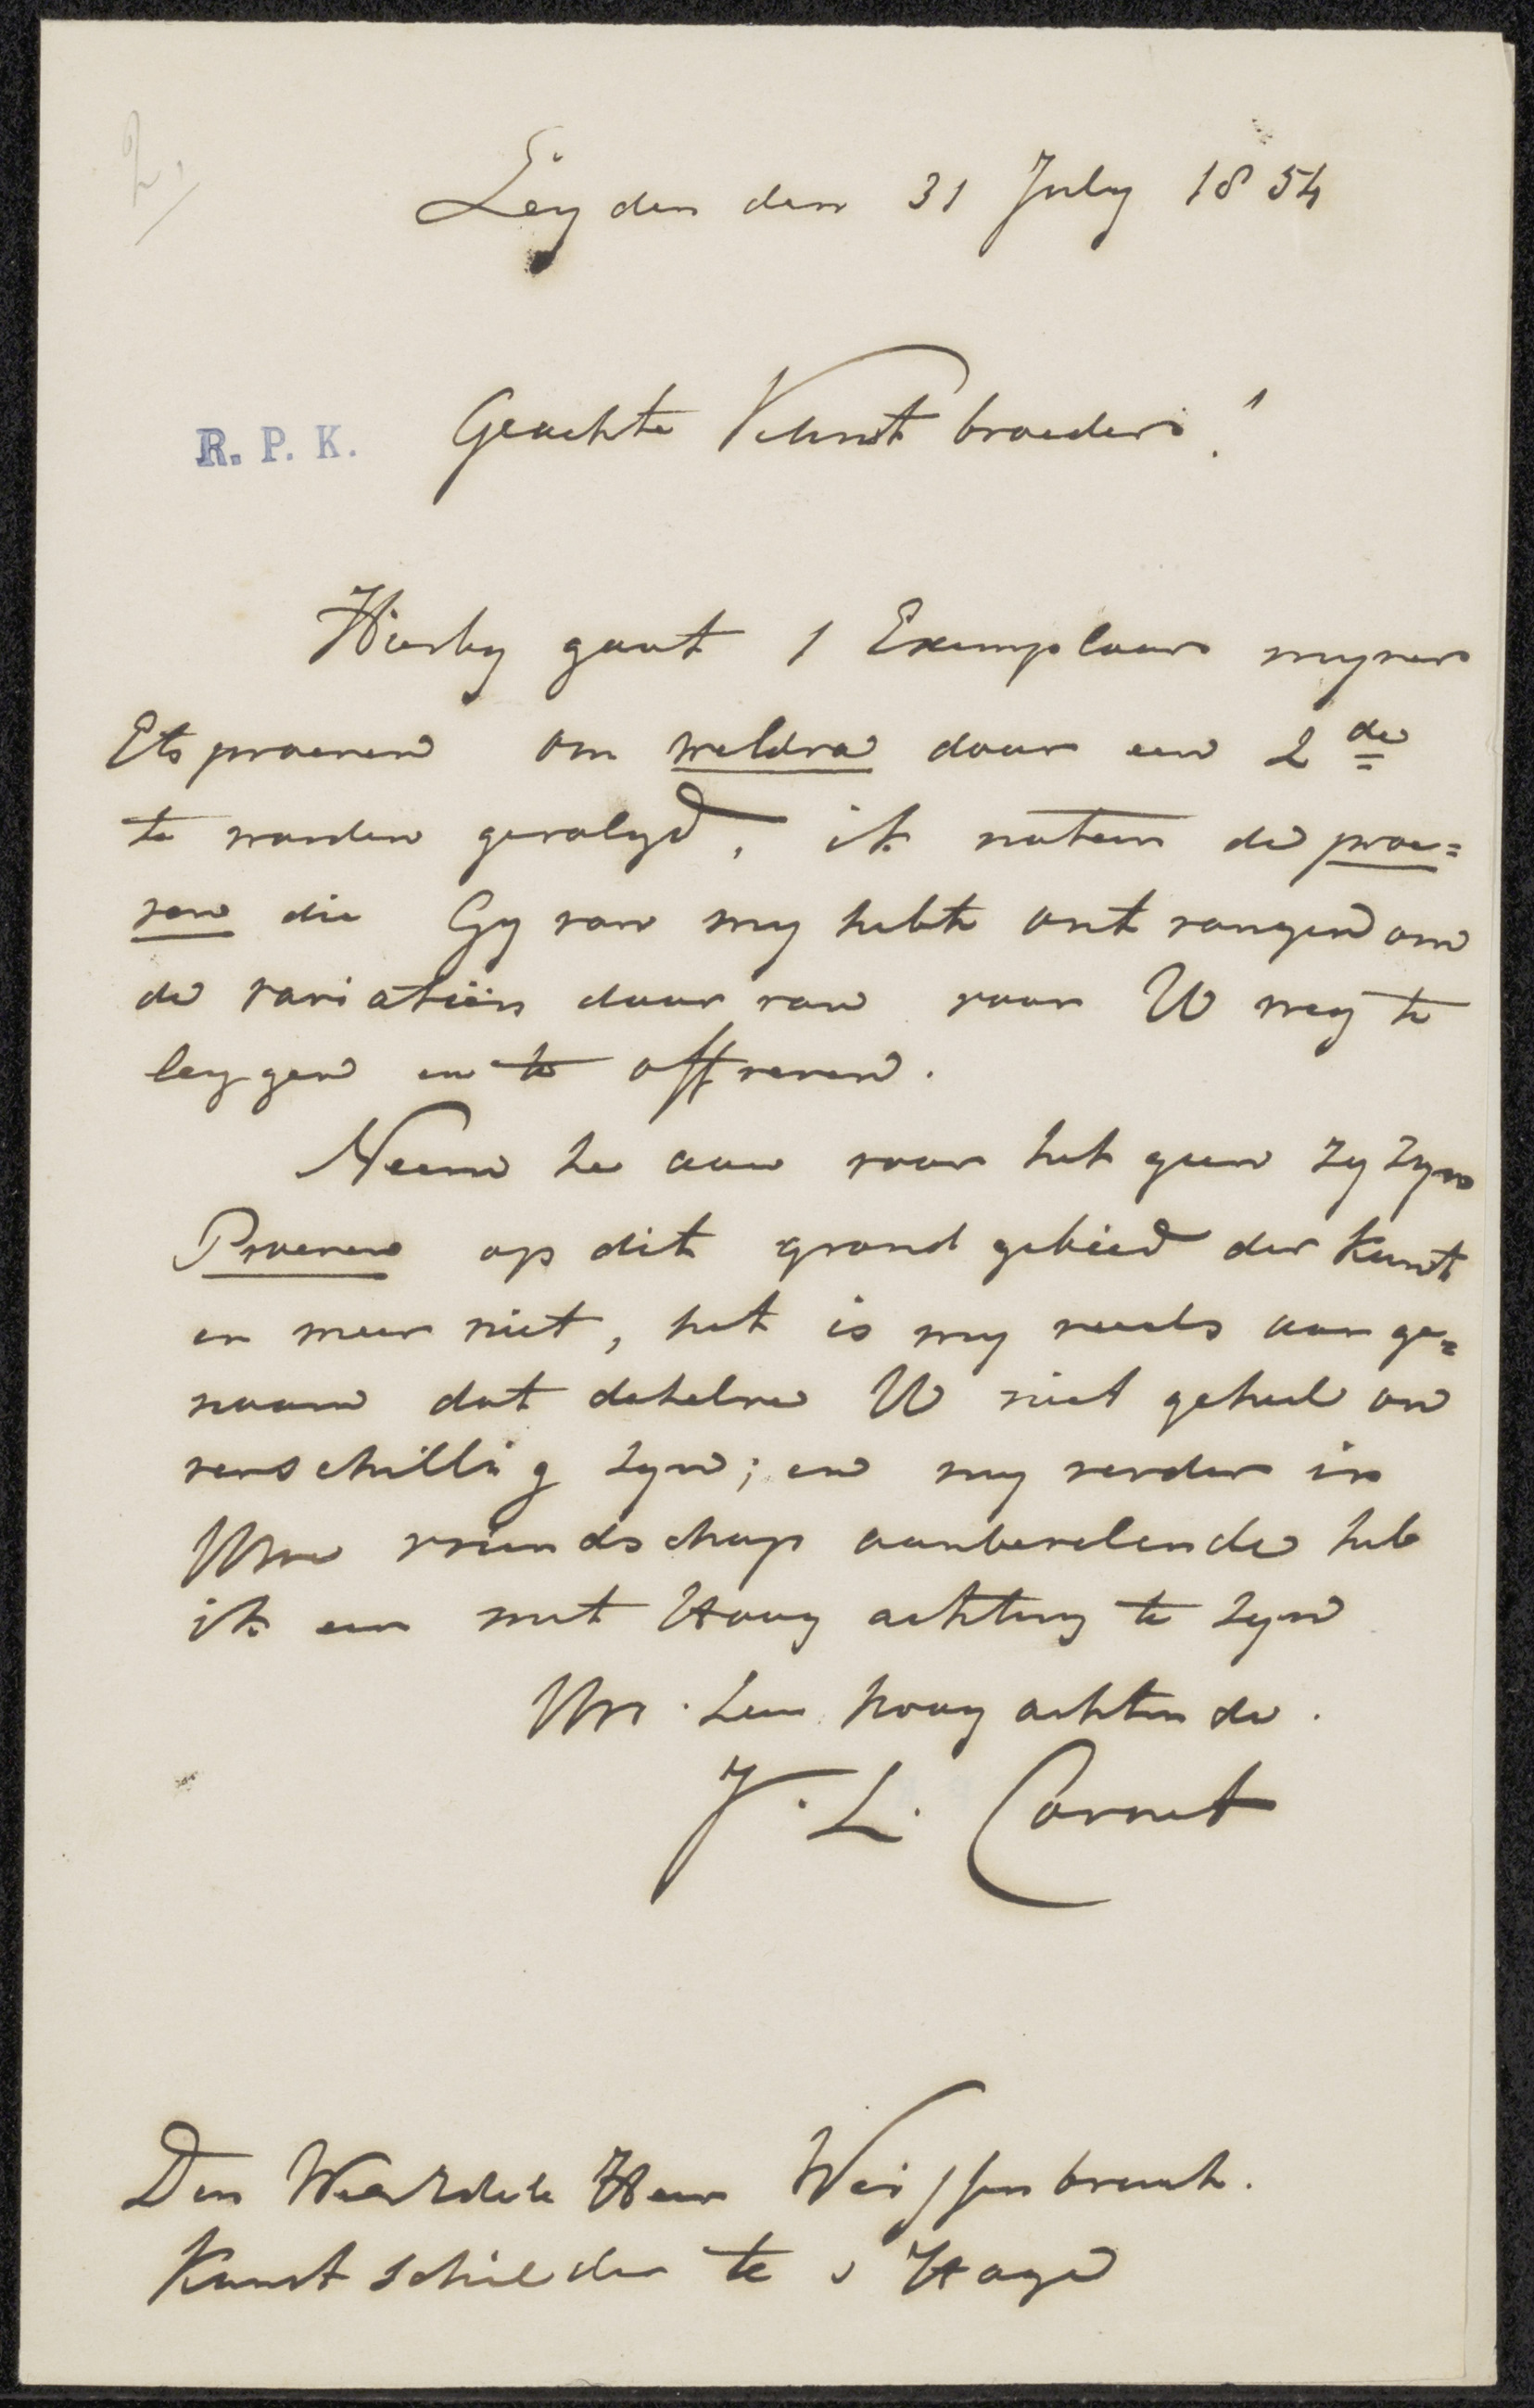 2,
Leyden den 31 July 1854
R. P. K.
Geachte Kunstbroeder!
Hierby gaat 1 Exemplaar myner
Etsproeven om weldra door een 2de
te worden gevolgd, ik noteer de proe=
ven die Gy van my hebt ontvangen om
de variatiën daar van voor U weg te
leggen en te offreren.
Neem ze aan voor het geen zy zyn
Proeven op dit grond gebied der Kunst
en meer niet, het is my reeds aange=
naam dat dezelve U niet geheel on
verschillig zyn; en my verder in
Uwe vriendschap aanbevelende heb
ik eer met Hoog achting te zyn
Uw. Zeer hoog achtende.
J. L. Cornet
Den Heer Weissenbruch.
Kunstschilder te s Hage